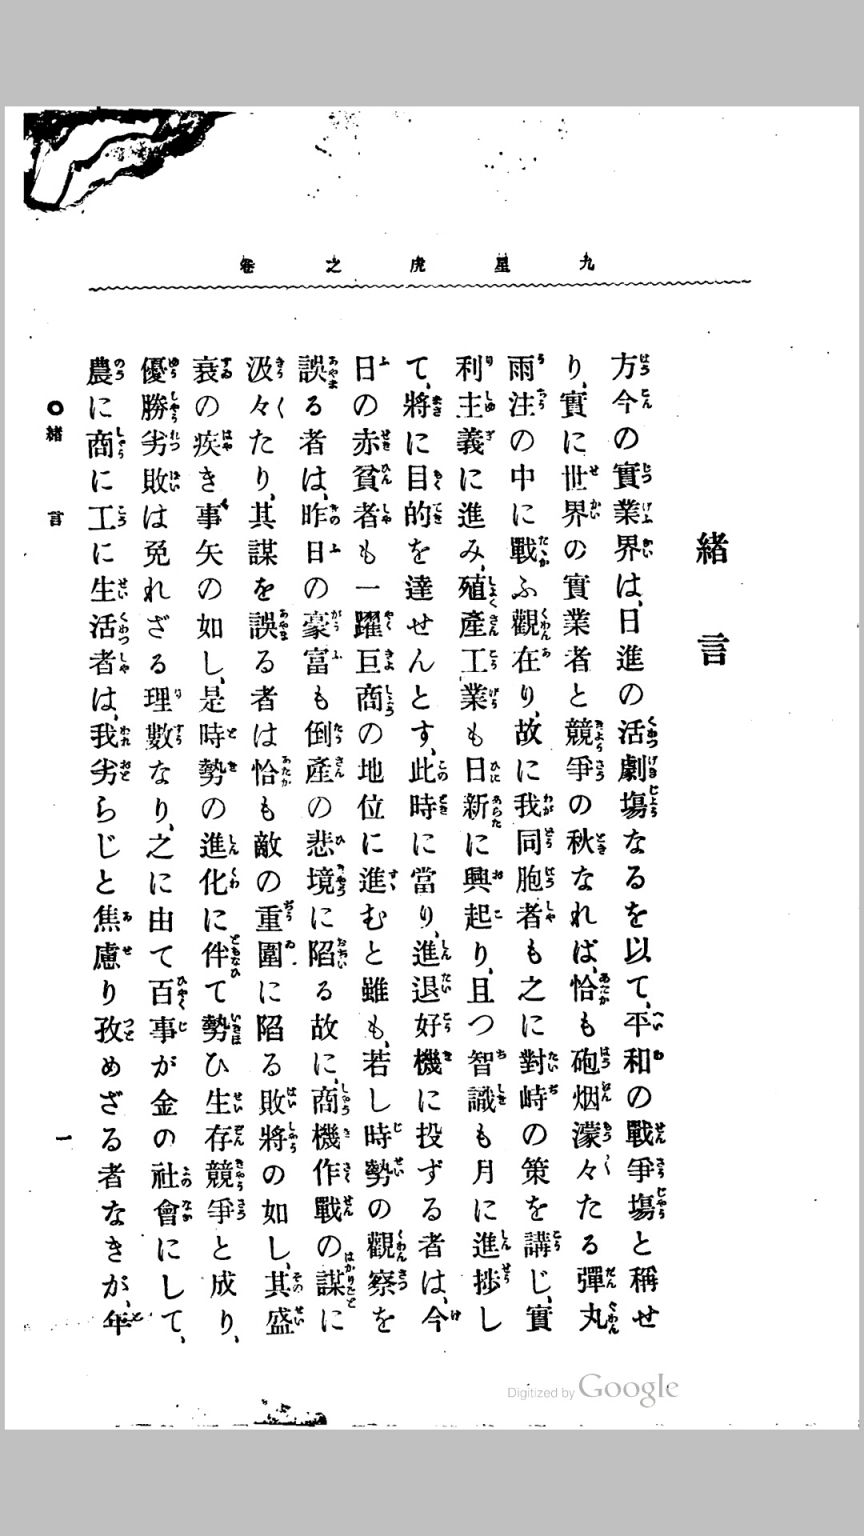 九星虎之卷
緒言
方今の實業界は、日進の活劇塲なるを以て、平和の戰爭塲と稱せ
り、實に世界の實業者と競爭の秋なれば、恰も砲烟濛々たる彈丸
雨注の中に戰ふ觀在り、故に我同胞者も之に對峙の策を講じ、實
利主義に進み、殖產工業も日新に興起り、且つ智識も月に進捗し
て、將に目的を達せんとす、此時に當り、進退好機に投ずる者は、今
日の赤貧者も一躍巨商の地位に進むと雖も、若し時勢の觀察を
誤る者は、昨日の豪富も倒產の悲境に陷る故に、商機作戰の謀に
汲々たり、其謀を誤る者は恰も敵の重圍に陷る敗將の如し、其盛
衰の疾き事矢の如し、是時勢の進化に伴て勢ひ生存競爭と成り、
優勝劣敗は免れざる理數なり、之に由て百事が金の社會にして、
農に商に工に生活者は、我劣らじと焦慮り孜めざる者なきが、年
○緒言
一
Digitized by Google